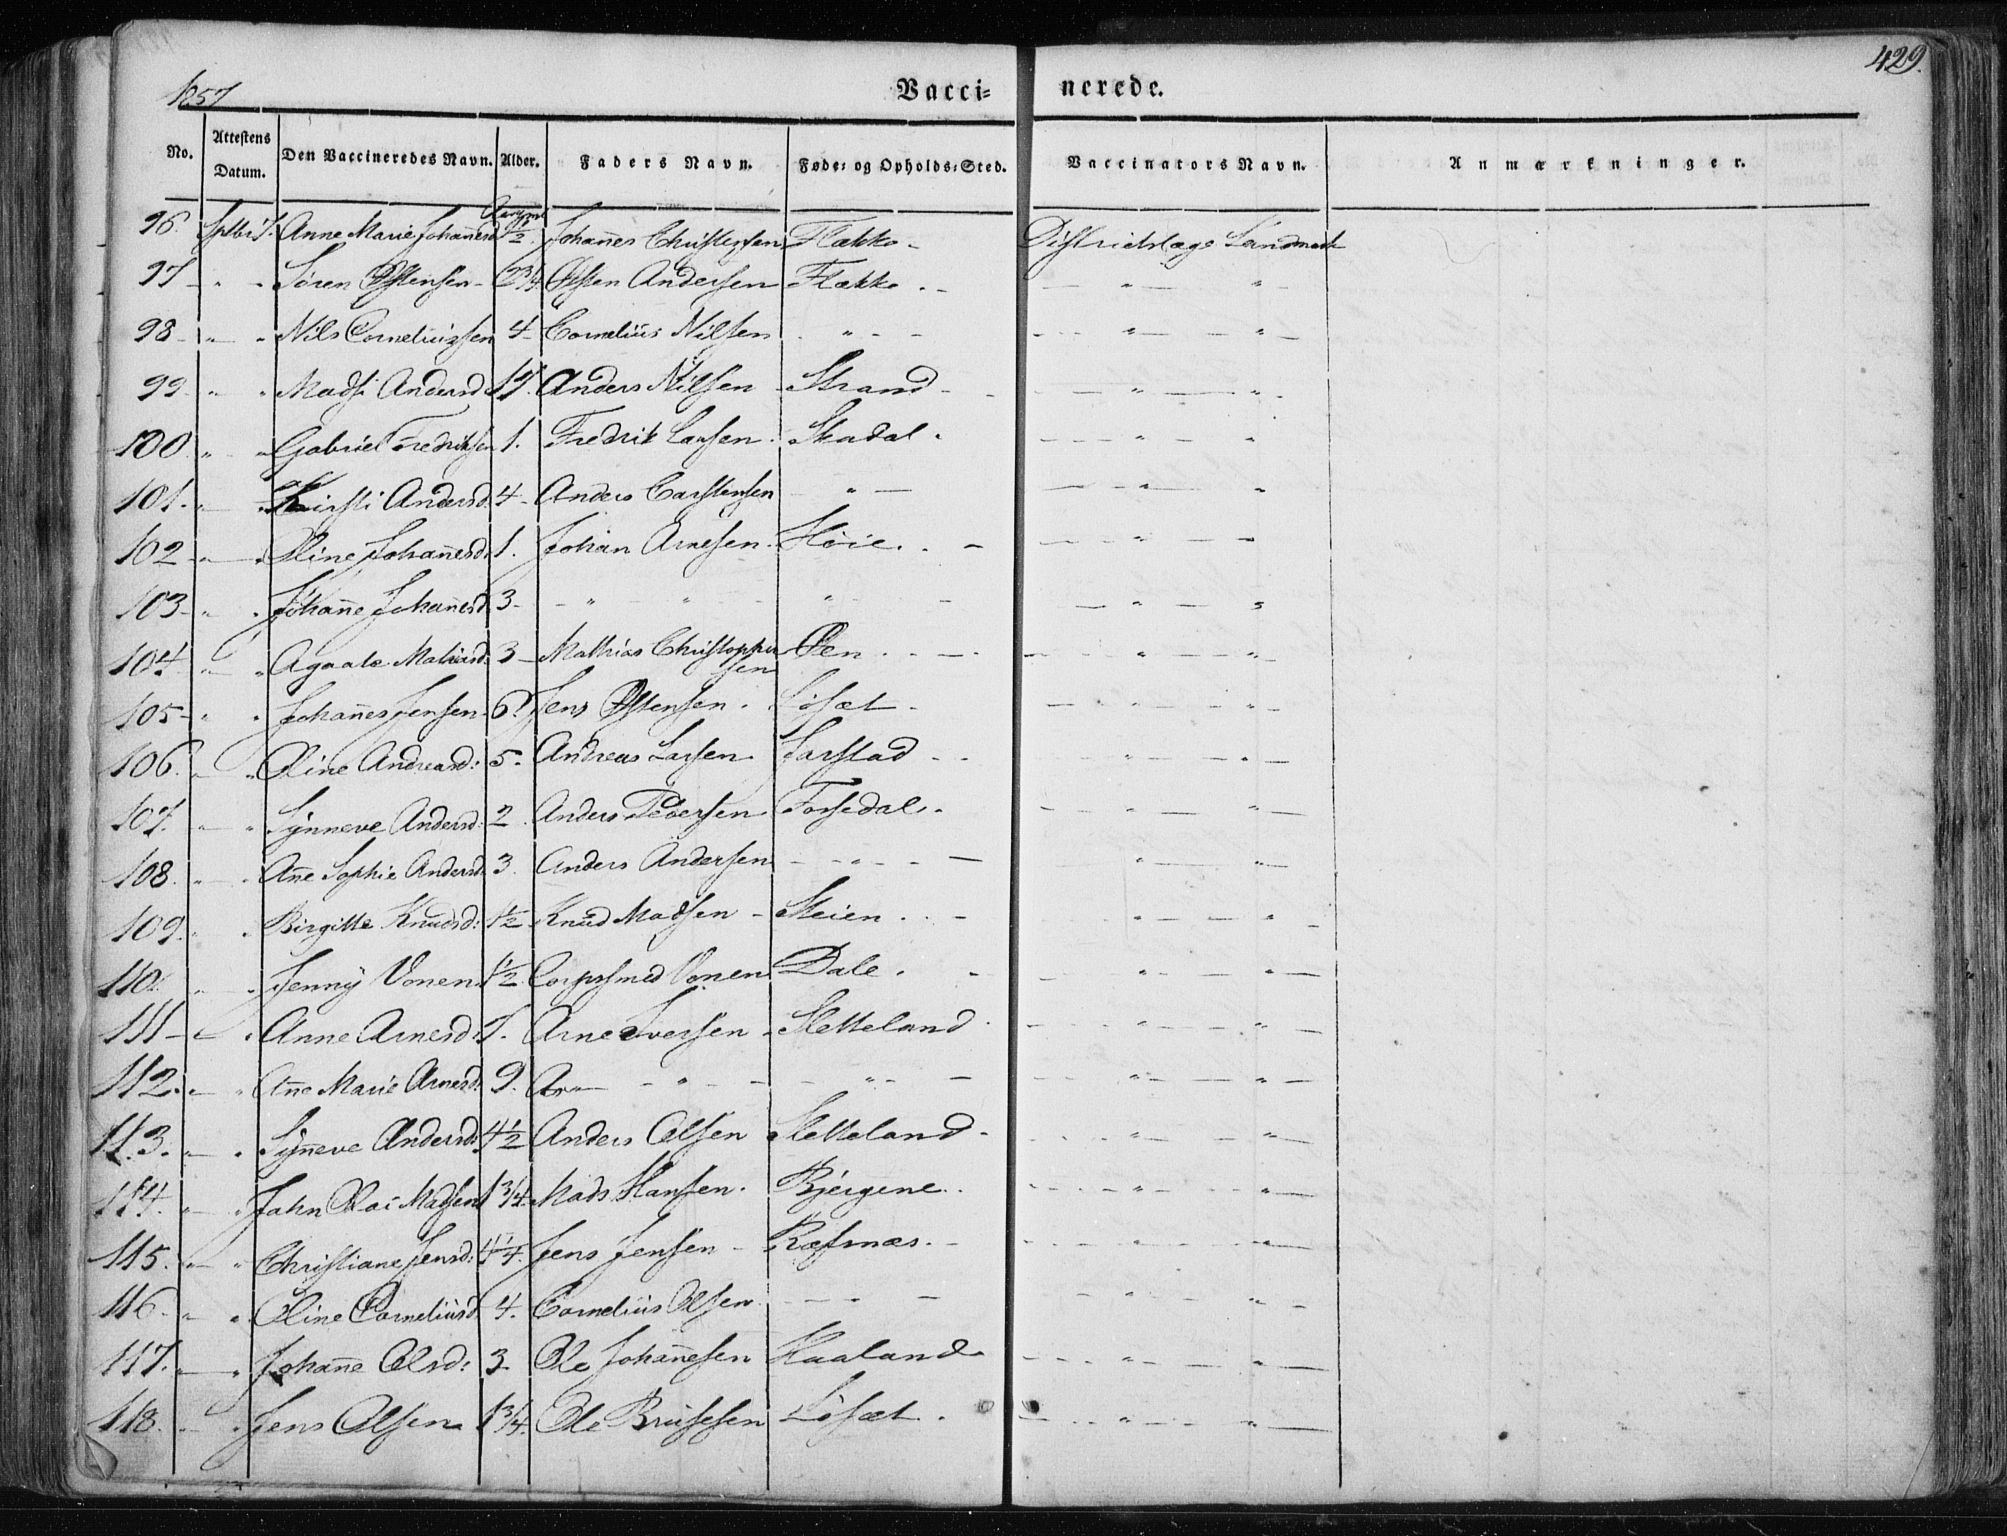 429.
1857
Vacci= nerede.
No. Attestens Datum. Den Vaccineredes Navn. Alder. Faders Navn. Føde= og Opholds=Sted. Vaccinators Navn. Anmærkninger.
96. Anne Marie Johañesd 1½ Johañes Christensen Flække - Districtslæge Landmark
97 - " " Søren Østensen - 2¾ Østen Andersen Flække . - — " — " -
98 - " " Nils Corneliussen 4 - Cornelius Nilsen " - - - - " — " -
99. " " Madsi Andersd 17. Anders Nilsen - Strand - — " — " -
100. " " Gabriel Fredriksen 1. Fredrik Larsen. Skadal . - - " - "
101. " " Kirsti Andersd. 4 - Anders Carstensen - " — — - " — "
102 - " " Oline Johañesd. 1. Johan Arnesen. Høie. . - — - " - -
103 - " " Johañe Johañesd. 3 - - " - " - " - — " — "
104. " " Agaate Mathiasd: 3 - Mathias Christopher Øen . . — . - - " — " -
sen
105 - " " Johañes Jensen. 6. Jens Østensen . Løsæt - — " — - " -
106. " " Oline Andreasd: 5. Andreas Larsen. Sarstad - - - " — - " -
107. " " Synneve Andersd: 2. Anders Pedersen Fossedal. - — " — " —
108. " " Añe Sophie Andersd. 3. Anders Andersen - - " - - — " — " -
109. " " Birgitte Knudsd: 1½ Knud Madsen - Steien . . - " — " -
110. " " Jenny Vonen 1½ Corpssmed Vonen Dale . - — " — " —
111 - " " Anne Arnesd: 7. Arne Iversen - Sletteland - - " — " —
112. " " Añe Marie Arnesd: 9. - " - — - " - — - - " — " —
113. " " Syñeve Andersd: 4½ Anders Olsen Sletteland - - - " — " —
114. " " John Olai Madsen 1¾ Mads Hansen . Bjergene . - - - " — " —
115. " " Christiane Jensd: 4¼ Jens Jensen - Ræfsnæs. - - - " — " —
116. " " Oline Corneliusd. 4. Cornelius Olsen. — - - — " - " -
117. " " Johañe Olsd: 3. Ole Johañesen Haaland - - - " — " —
118. " " Jens Olsen 1¾. Ole Brusesen Løsæt . - - " — " —